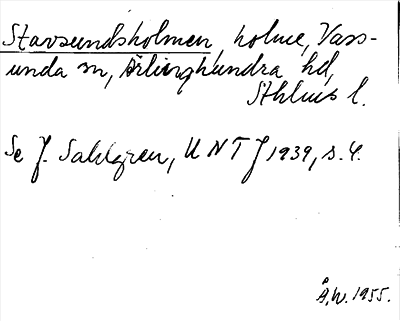 Stavsundsholmen, holme, Vass-
unda sn, Ärlinghundra hd,
Sthlms l.
Se J. Sahlgren, UNT J 1939, s. 4.
Å.W. 1955.